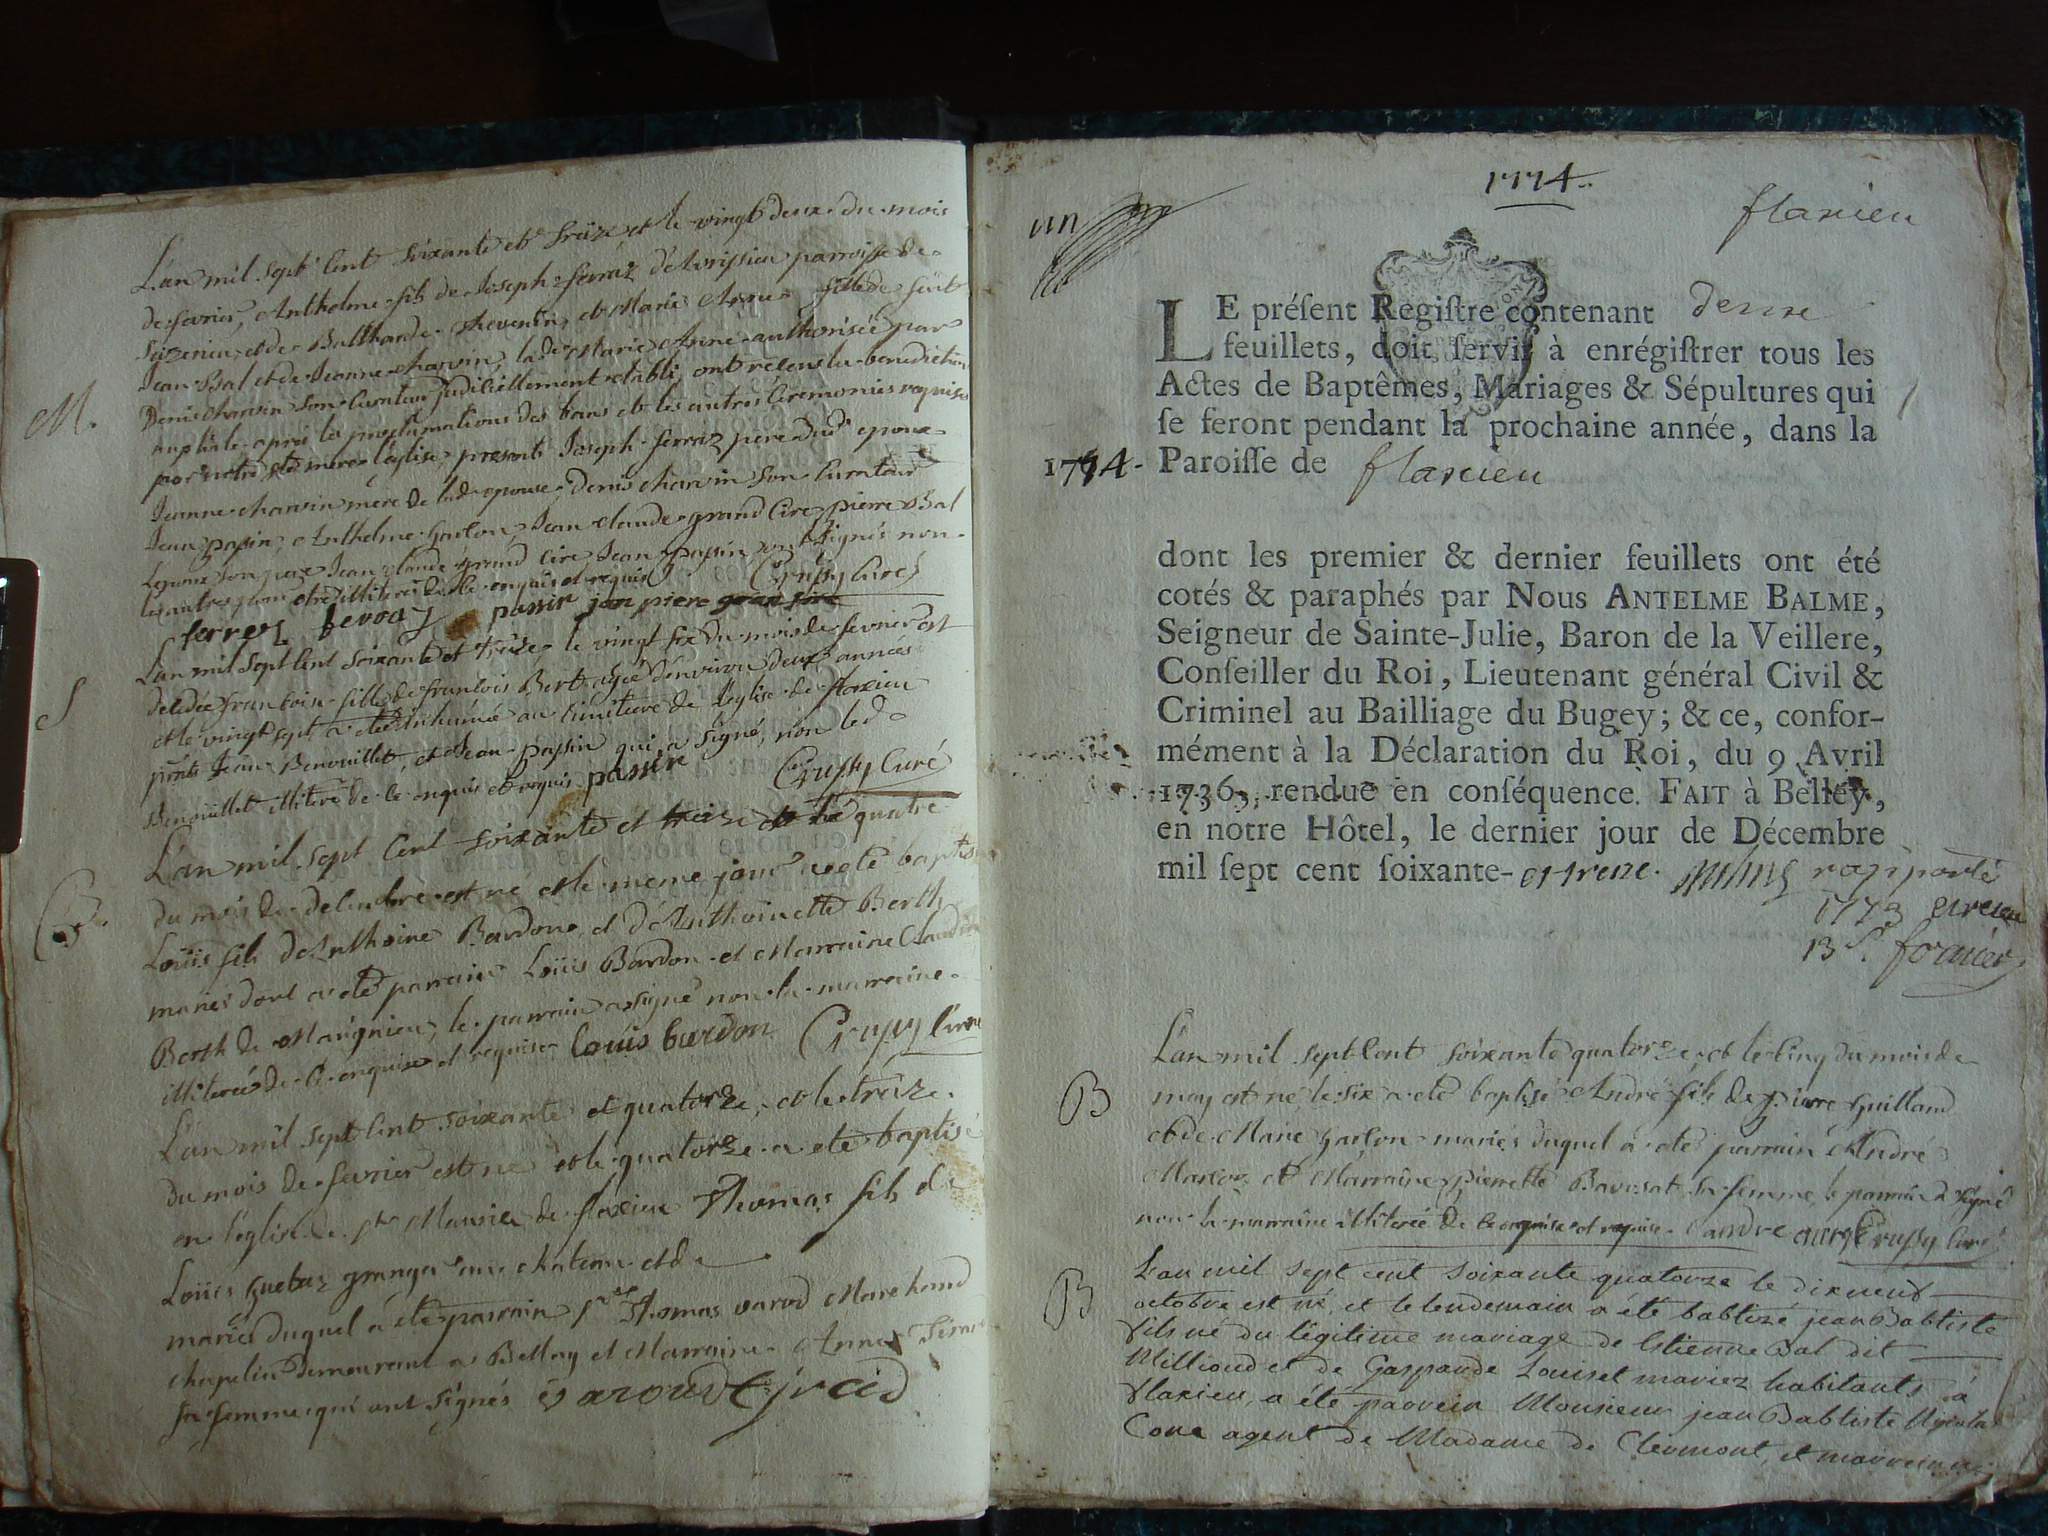 L'an mil sept Cent soixante et treize et le vingt deux du mois
de fevrier, Anthelme fils de Joseph ferraz d'Avrissieu parroisse de
et de Balthazarde Thevenin, et Marie Anne fille de feüt
Jean Bal et de Jeanne charvin, lad. Marie Anne authorisée par
Denis charvin son Curateur judiciellement etabli, ont reçeus la benediction
nuptiale apres les proclamations des bans et les autres Ceremonies requises
par notre ste mere l'eglise, presents Joseph ferraz pere dud. epoux
Jeanne charvin mere de lad. epouse, Denis charvin son Curateur
Jean passin, Anthelme Garlon, Jean claude grand Cire, pierre Bal
Jean claude grand Cire, Jean passin ont signés non
les autres pour etre illiterés de ce enquis et requis Crussy Curé
passin jan piere gran sire
M.
L'an mil sept Cent soixante et treize le vingt six du mois de fevrier est
decedée francoise fille de francois Bert agée d'environ deux années
et le vingt sept a eté inhumée au cimitiere de l'eglise de flaxieu
pnts Jean Benouillet, et Jean passin qui a signé, non led.
Benouillet illiteré de ce enquis et requis passin Crussy Curé
S
L'an mil sept Cent soixante et treize et le quatre
du mois de decembre est né et le meme jour a eté baptisé
Loüis fils d'Anthoine Bardon, et d'Anthoinette Berth
mariés dont a eté parrain Loüis Bardon et Marraine Claudine
Berth de Maignieu, le parrain a signé non la marraine
illiterée de ce enquise et requise louis bardon Crussy Curé
B.
L'an mil sept Cent soixante et quatorze, et le treize
du mois de fevrier est né et le quatorze a eté baptisé
en l'eglise de st Maurice de flaxieu Thomas fils de
Loüis Guebaz granger au chateau et de
mariés duquel a eté parrain Sr Thomas varod Marchand
chapelier demeurant a Bellay et Marraine Anne
sa femme qui ont signés
1774.
un
flaxieu
LE présent Registre contenant deux
feuillets, doit servir à enrégistrer tous les
Actes de Baptêmes, Mariages & Sépultures qui
se feront pendant la prochaine année, dans la
1774. Paroisse de flaxieu
dont les premier & dernier feuillets ont été
cotés & paraphés par Nous ANTELME BALME,
Seigneur de Sainte-Julie, Baron de la Veillere,
Conseiller du Roi, Lieutenant général Civil &
Criminel au Bailliage du Bugey; & ce, confor-
mément à la Déclaration du Roi, du 9 Avril
1736, rendue en conséquence. FAIT à Belley,
en notre Hôtel, le dernier jour de Décembre
mil sept cent soixante- et treize. rapporté
1773
13 s.
L'an mil sept Cent soixante quatorze, et le cinq du mois de
may est né le six a eté baptisé André fils de pierre Guilland
et de Marie Garlon mariés duquel a eté parrain André
et Marraine pierrette sa femme, le parrain a signé
non la marraine illiterée de ce enquise et requise andre Crussy Curé
B
L'an mil sept cent soixante quatorze le dixneuf
octobre est né, et le lendemain a été babtizé jean Babtiste
fils né du légitime mariage de Estienne Bal dit
Millioud et de Gasparde Louiset mariez habitants à
flaxieu, a été parrein Monsieur jean Babtiste Nicolas
Coue agent de Madame de Clermont, et marreine
B